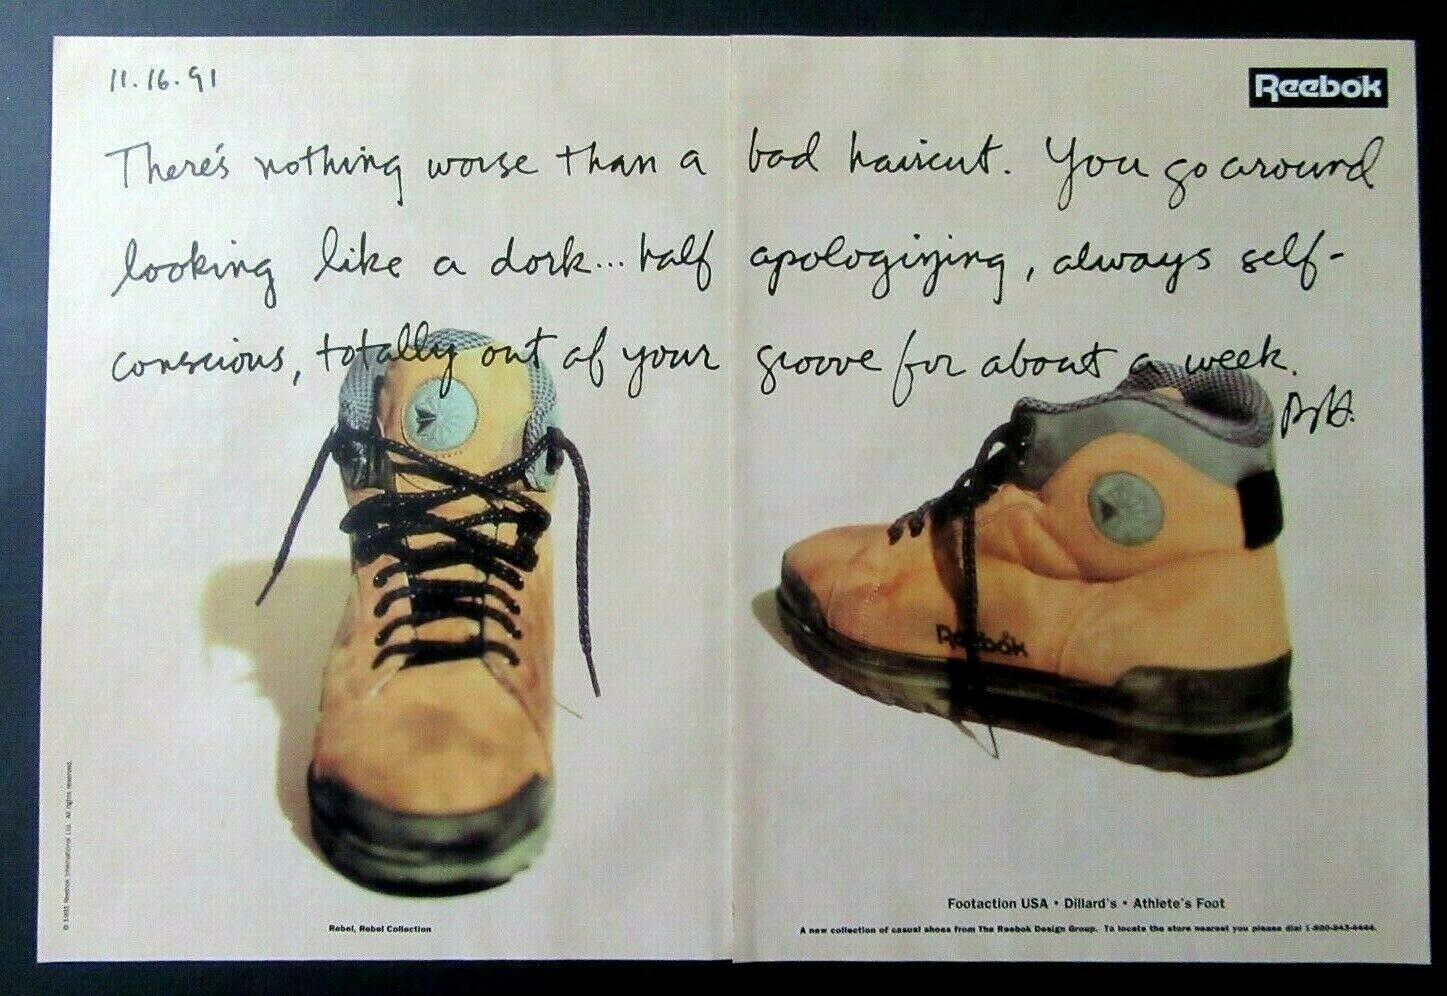 11.16.91
Reebok
There's nothing worse than a bad haircut. You go around
looking like a dork... half apologizing, always self-
conscious, totally out of your groove for about a week.
Reebok
Footaction USA • Dillard's • Athlete's Foot
Rebel, Rebel Collection
A new collection of casual shoes from The Reebok Design Group. To locate the store nearest you please dial 1-800-843-4444.
Reebok International Ltd. All rights reserved.